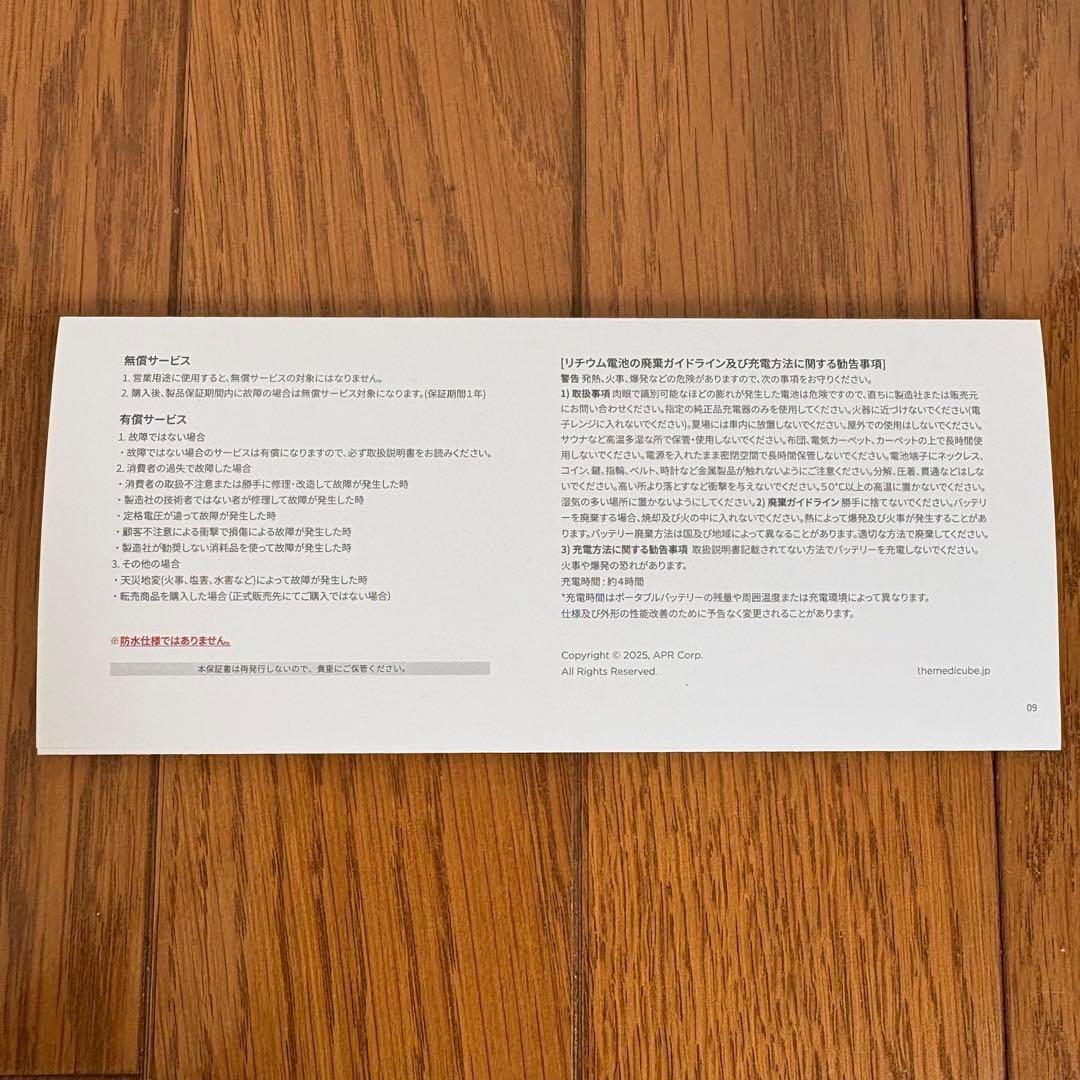 無償サービス
1. 営業用途に使用すると、無償サービスの対象にはなりません。
2. 購入後、製品保証期間内に故障の場合は無償サービス対象になります。(保証期間1年)
有償サービス
1. 故障ではない場合
・故障ではない場合のサービスは有償になりますので、必ず取扱説明書をお読みください。
2. 消費者の過失で故障した場合
・消費者の取扱不注意または勝手に修理・改造して故障が発生した時
・製造社の技術者ではない者が修理して故障が発生した時
・定格電圧が違って故障が発生した時
・顧客不注意による衝撃で損傷による故障が発生した時
・製造社が勧奨しない消耗品を使って故障が発生した時
3. その他の場合
・天災地変(火事、塩害、水害など)によって故障が発生した時
・転売商品を購入した場合(正式販売先にてご購入ではない場合)
※防水仕様ではありません。
本保証書は再発行しないので、貴重にご保管ください。
[リチウム電池の廃棄ガイドライン及び充電方法に関する勧告事項]
警告 発熱、火事、爆発などの危険がありますので、次の事項をお守りください。
1) 取扱事項 肉眼で識別可能なほどの膨れが発生した電池は危険ですので、直ちに製造社または販売元
にお問い合わせください。指定の純正品充電器のみを使用してください。火器に近づけないでください(電
子レンジに入れないでください)。夏場には車内に放置しないでください。屋外での使用はしないでください。
サウナなど高温多湿な所で保管・使用しないでください。布団、電気カーペット、カーペットの上で長時間使
用しないでください。電源を入れたまま密閉空間で長時間保管しないでください。電池端子にネックレス、
コイン、鍵、指輪、ベルト、時計など金属製品が触れないようにご注意ください。分解、圧着、貫通などはしな
いでください。高い所より落とすなど衝撃を与えないでください。50℃以上の高温に置かないでください。
湿気の多い場所に置かないようにしてください。2) 廃棄ガイドライン 勝手に捨てないでください。バッテリ
ーを廃棄する場合、焼却及び火の中に入れないでください。熱によって爆発及び火事が発生することがあ
ります。バッテリー廃棄方法は国及び地域によって異なることがあります。適切な方法で廃棄してください。
3) 充電方法に関する勧告事項 取扱説明書記載されてない方法でバッテリーを充電しないでください。
火事や爆発の恐れがあります。
充電時間 : 約4時間
*充電時間はポータブルバッテリーの残量や周囲温度または充電環境によって異なります。
仕様及び外形の性能改善のために予告なく変更されることがあります。
Copyright © 2025, APR Corp.
All Rights Reserved.
themedicube.jp
09